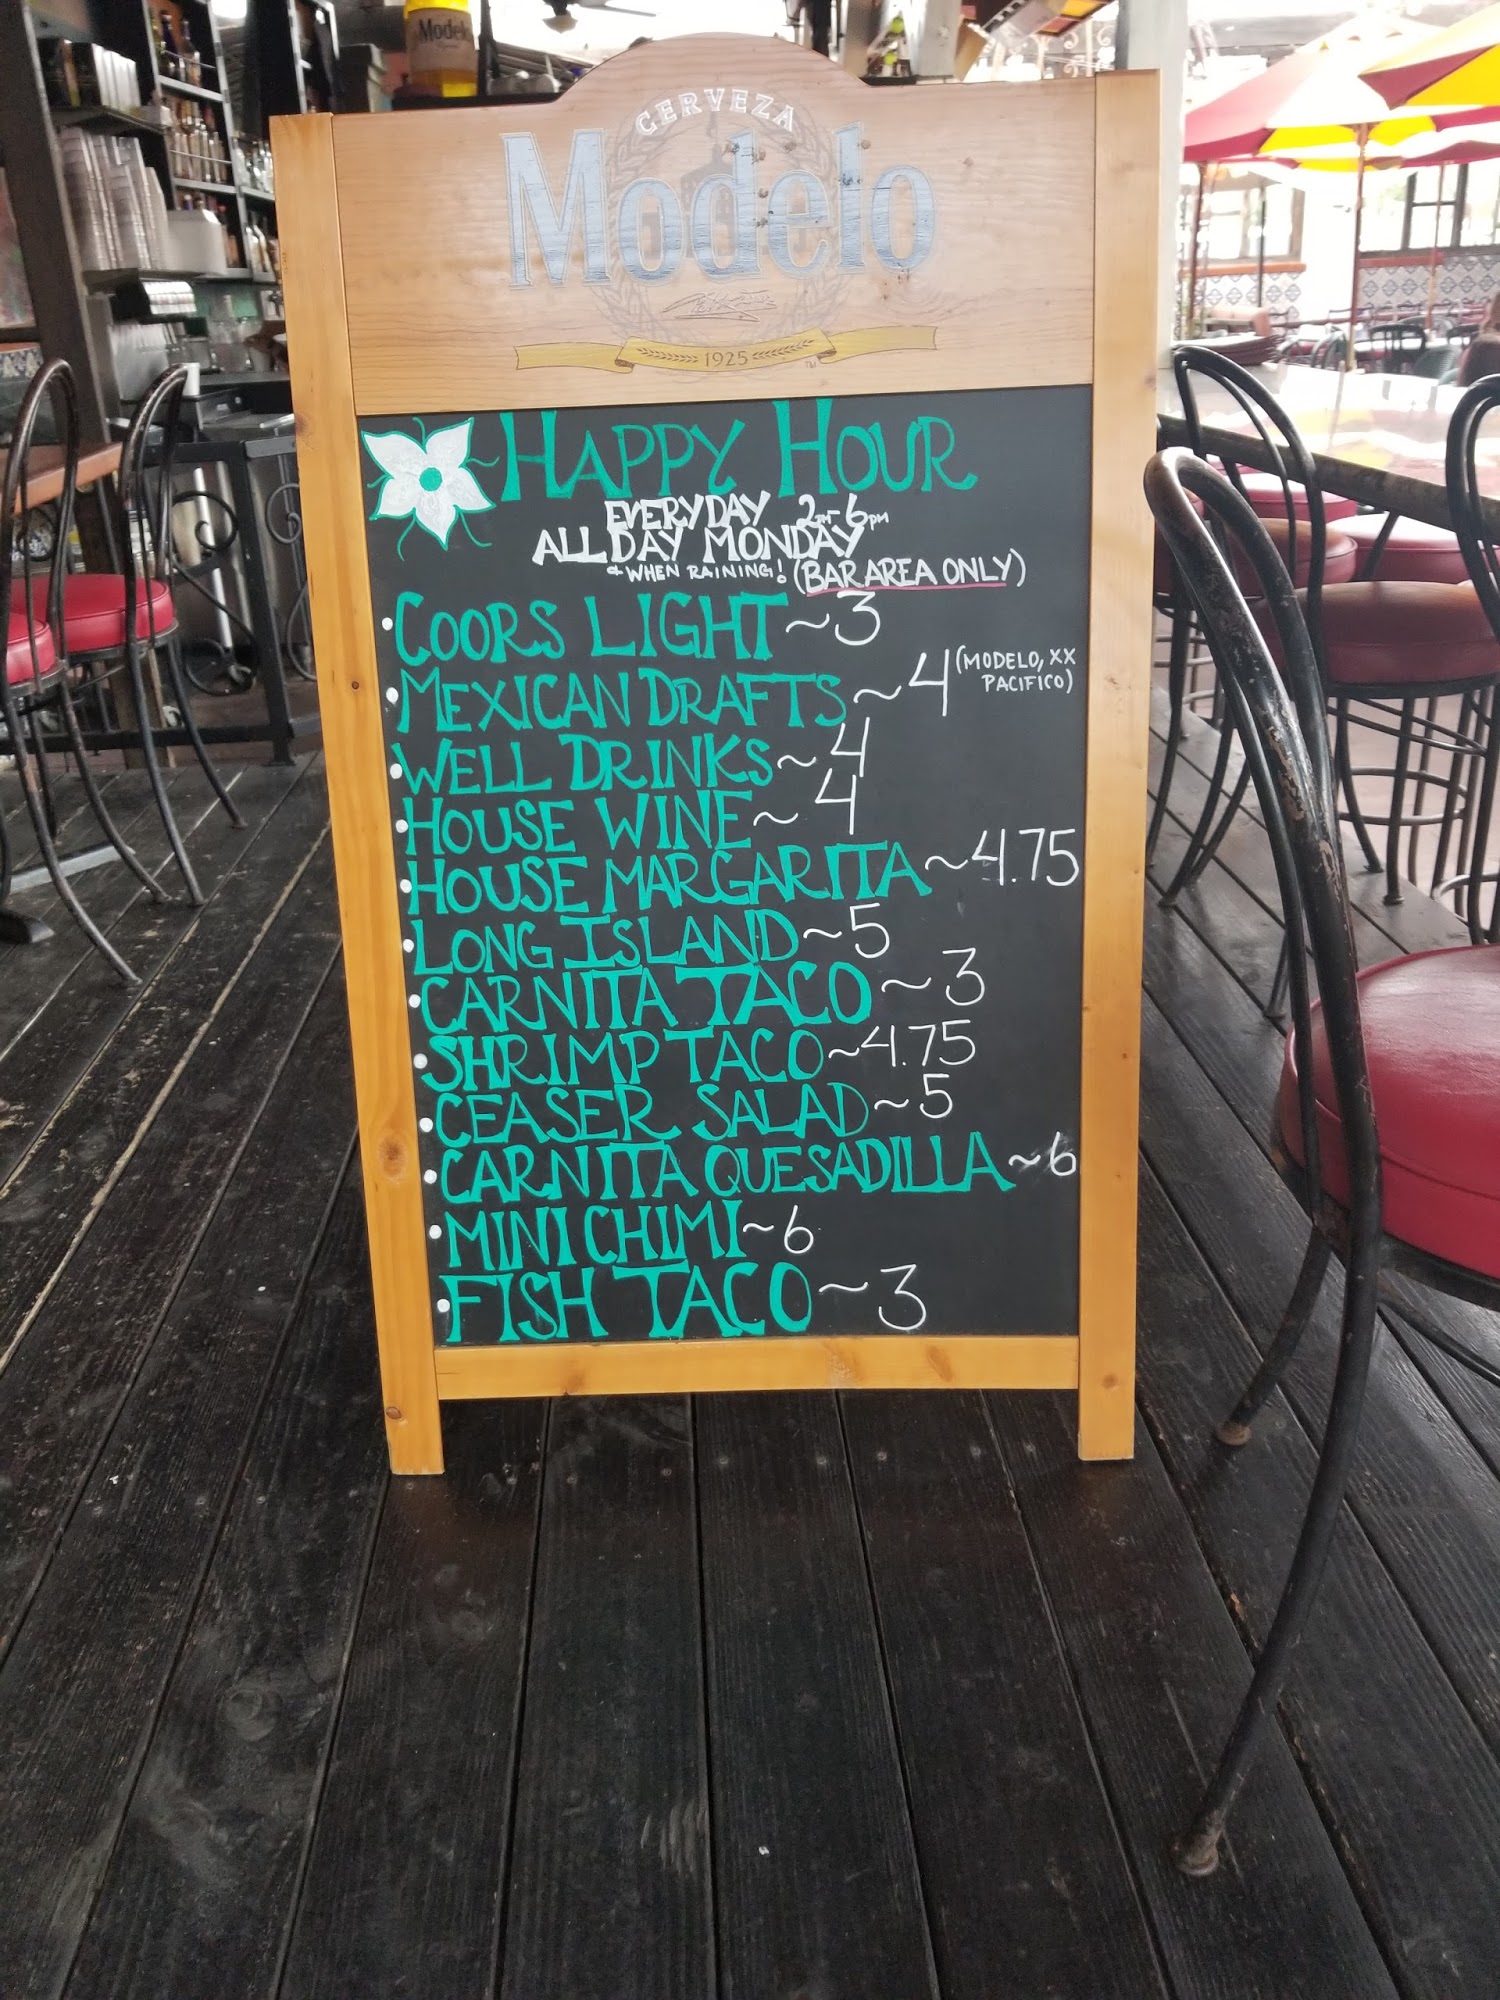 Modelo
CERVEZA
Modelo
1925
HAPPY HOUR
EVERYDAY 2PM-6PM
ALL DAY MONDAY
& WHEN RAINING! (BAR AREA ONLY)
• COORS LIGHT ~ 3
• MEXICAN DRAFTS ~ 4 (MODELO, XX
PACIFICO)
• WELL DRINKS ~ 4
• HOUSE WINE ~ 4
• HOUSE MARGARITA ~ 4.75
• LONG ISLAND ~ 5
• CARNITA TACO ~ 3
• SHRIMP TACO ~ 4.75
• CEASER SALAD ~ 5
• CARNITA QUESADILLA ~ 6
• MINI CHIMI ~ 6
• FISH TACO ~ 3